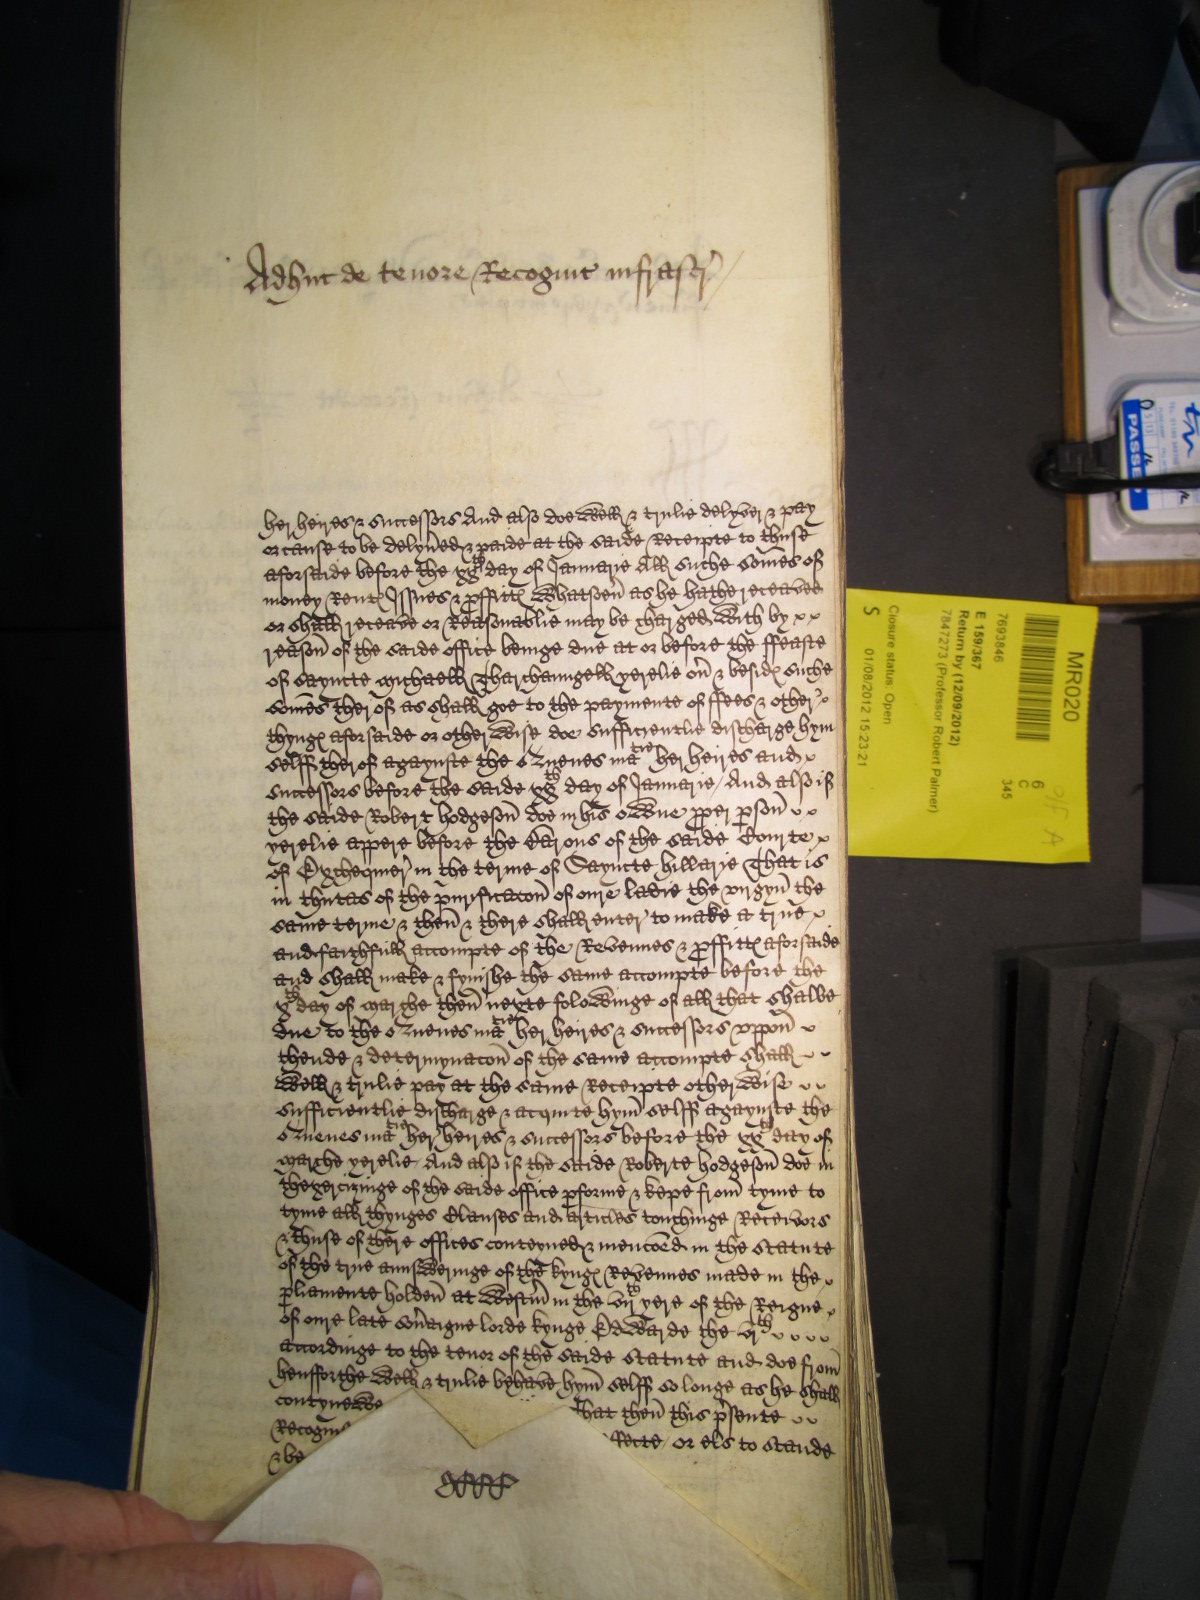 Adhuc de tenore Recognit infrascr
her heires & successors And also doe well & trulie delyver & pay
or cause to be delyv'ed & paide at the saide Receipte to thuse
aforsaide before the xxth day of Januarie All suche somes of
money Rent Issues & proffitt whatsoev' as he hathe receaved
or shall receave or Reasonablie may be charged with by x x
reason of the saide office beinge due at or before the ffeaste
of saynete michaell Tharchaungell yerelie ov' & besides suche
somes therof as shall goe to the paymente of ffees & other
thyngs aforsaide or otherwise doe sufficientlie discharge hym
selff therof agaynste the Quenes matie her heires and
successors before the saide xxth day of Januarie / And also if
the saide Robert hodgeson doe in his owne proper person
yerelie appere before the Barons of the saide Courte
of Exchequier in the terme of Sayncte hillarie That is
in thutas of the purificacon of oure ladie the virgyn the
same terme & then & there shall enter to make a true
and faithfull accompte of the Revenues & proffitts aforsaide
and shall make & fynishe the same accompte before the
xth day of marche then nexte folowinge of all that shalbe
due to the Quenes matie her heires & successors vppon
thende & determynacon of the same accompte shall
well & trulie pay at the same Receipte otherwise
sufficientlie discharge & acquite hym selff agaynste the
Quenes matie her heires & successors before the xxth day of
marche yerelie And also if the saide Roberte hodgeson doe in
thexercizinge of the saide office pforme & kepe from tyme to
tyme all thynges Clauses and articles touchinge Receivors
& thuse of there offices conteyned & mencoed in the statute
of the true annsweringe of the kyngs Revenues made in the
pliamente holden at westm in the viith yere of the Reigne
of oure late sov'aigne lorde kynge Edwarde the vith
accordinge to the tenor of the saide statute and doe from
hensforthe well & trulie behave hym selff so longe as he shall
contynewe That then this p'sente
Recogni ffecte / or els to stande
& be
MR020
6
C
345
7693846
E 159/367
Return by (12/09/2012)
7847273 (Professor Robert Palmer)
Closure status: Open
S 01/08/2012 15:23:21
PASSE